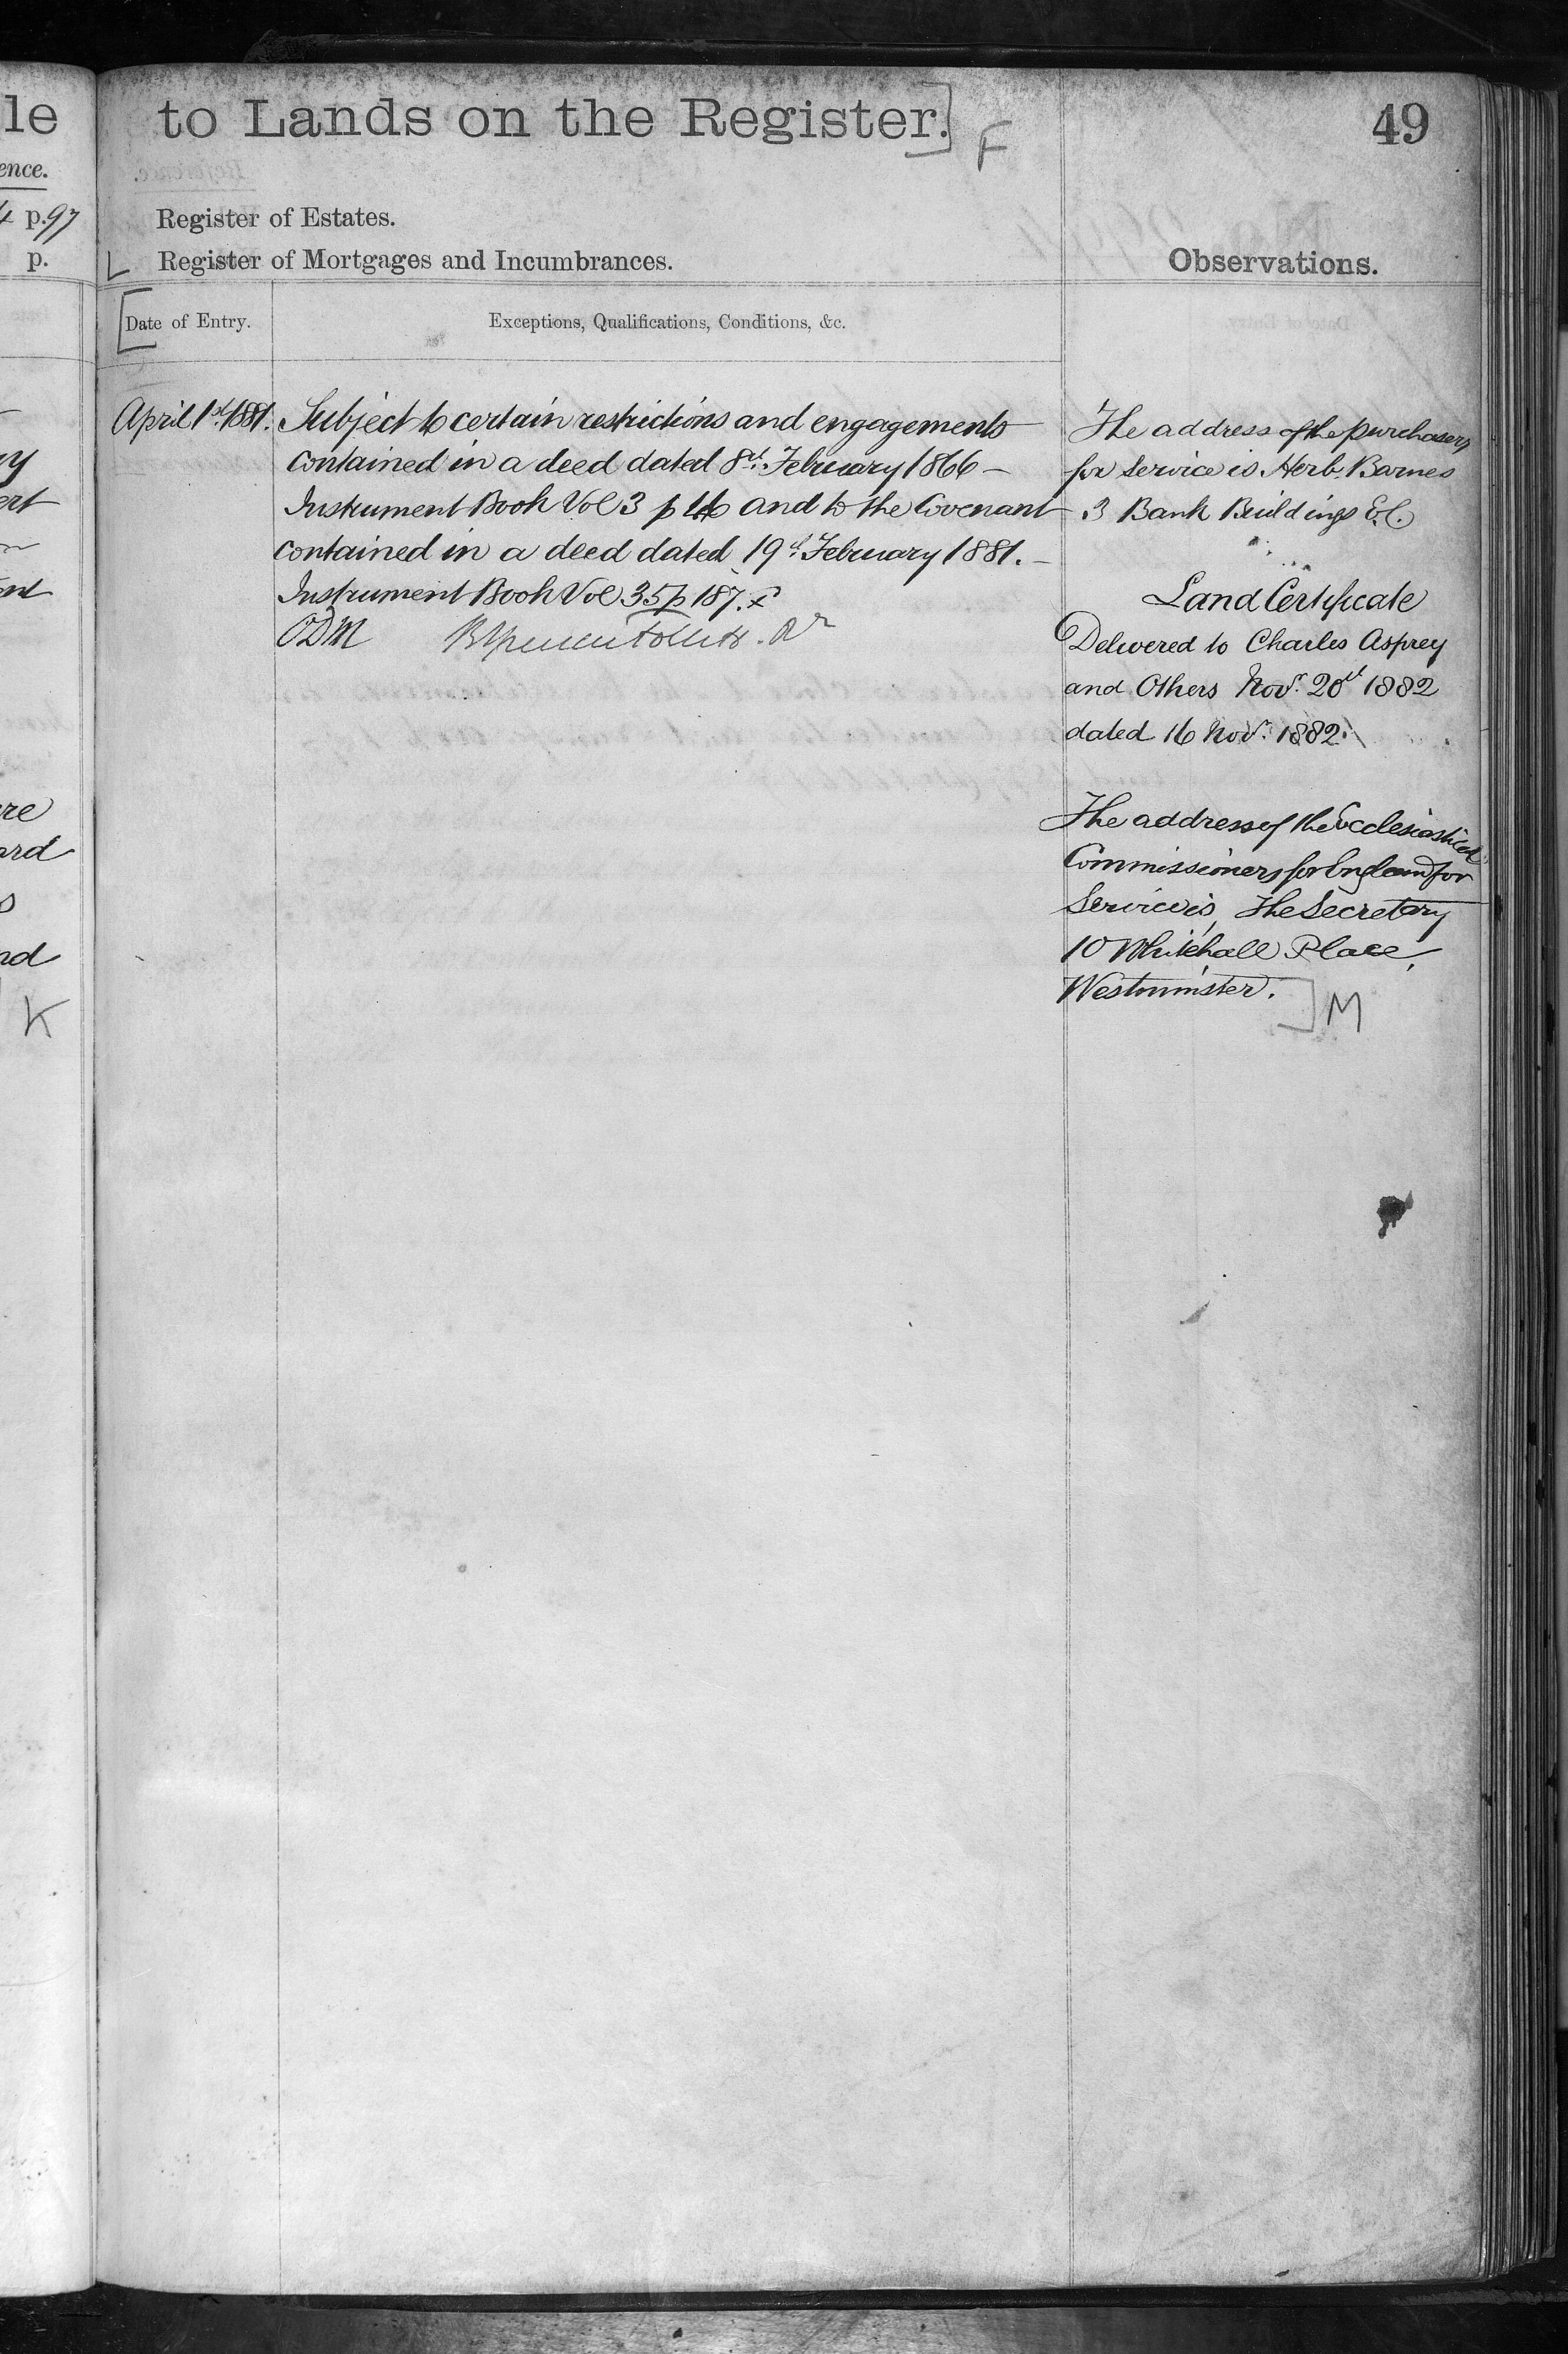 le
ence.
4 p.97
p.
ry
ert
ent
re
ard
s
nd
K
to Lands on the Register.] F
49
Register of Estates.
Register of Mortgages and Incumbrances.
Observations.
[Date of Entry.
Exceptions, Qualifications, Conditions, &c.
April 1st 1881.
Subject to certain restrictions and engagements
contained in a deed dated 8th February 1866 –
Instrument Book Vol 3 p and to the Covenant
contained in a deed dated 19th February 1881. –
Instrument Book Vol 35 p 187. x
ODM R Spencer Follett. Rr
The address of the purchasers
for Service is Herb. Barnes
3 Bank Buildings E.C.
Land Certificate
Delivered to Charles Asprey
and Others Novr. 20th 1882
dated 16 Novr. 1882.
The address of the Ecclesiastical
Commissioners for England for
Service is, The Secretary
10 Whitehall Place,
Westminster. ] M